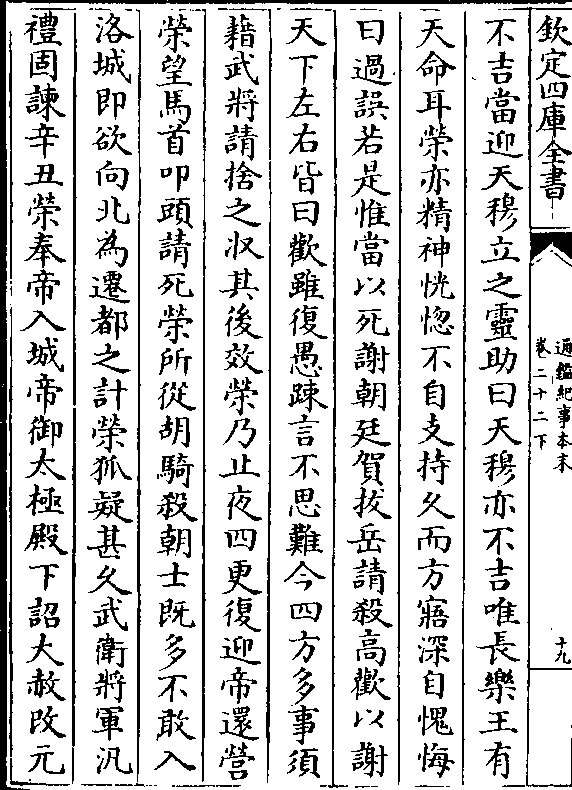 欽定四庫全書
通鑑紀事本末
卷二十二下
十九
不吉當迎天穆立之靈助曰天穆亦不吉唯長樂王有
天命耳榮亦精神恍惚不自支持久而方寤深自愧悔
曰過誤若是惟當以死謝朝廷賀拔岳請殺高歡以謝
天下左右皆曰歡雖復愚踈言不思難今四方多事須
藉武將請捨之收其後效榮乃止夜四更復迎帝還營
榮望馬首叩頭請死榮所從胡騎殺朝士既多不敢入
洛城即欲向北為遷都之計榮狐疑甚久武衛將軍汎
禮固諫辛丑榮奉帝入城帝御太極殿下詔大赦改元